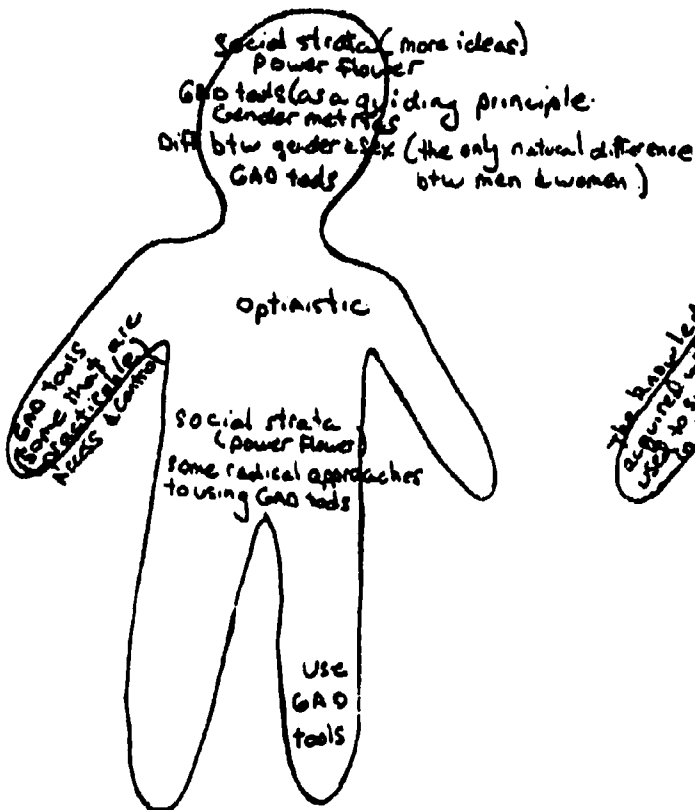 Social strata (more ideas)
power flower
GAD tools (as a guiding principle.
Gender metrics
Diff btw gender & sex (the only natural difference
btw men & women)
GAD tools
optimistic
GAD tools
(some that are
practicable)
Access & control
social strata
(power flower)
some radical approaches
to using GAD tools
use
GAD
tools
The knowled
acquired
used to